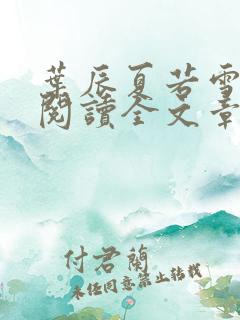 葉辰夏若雪
閱讀全文章
付君蘭
未經同意禁止轉載